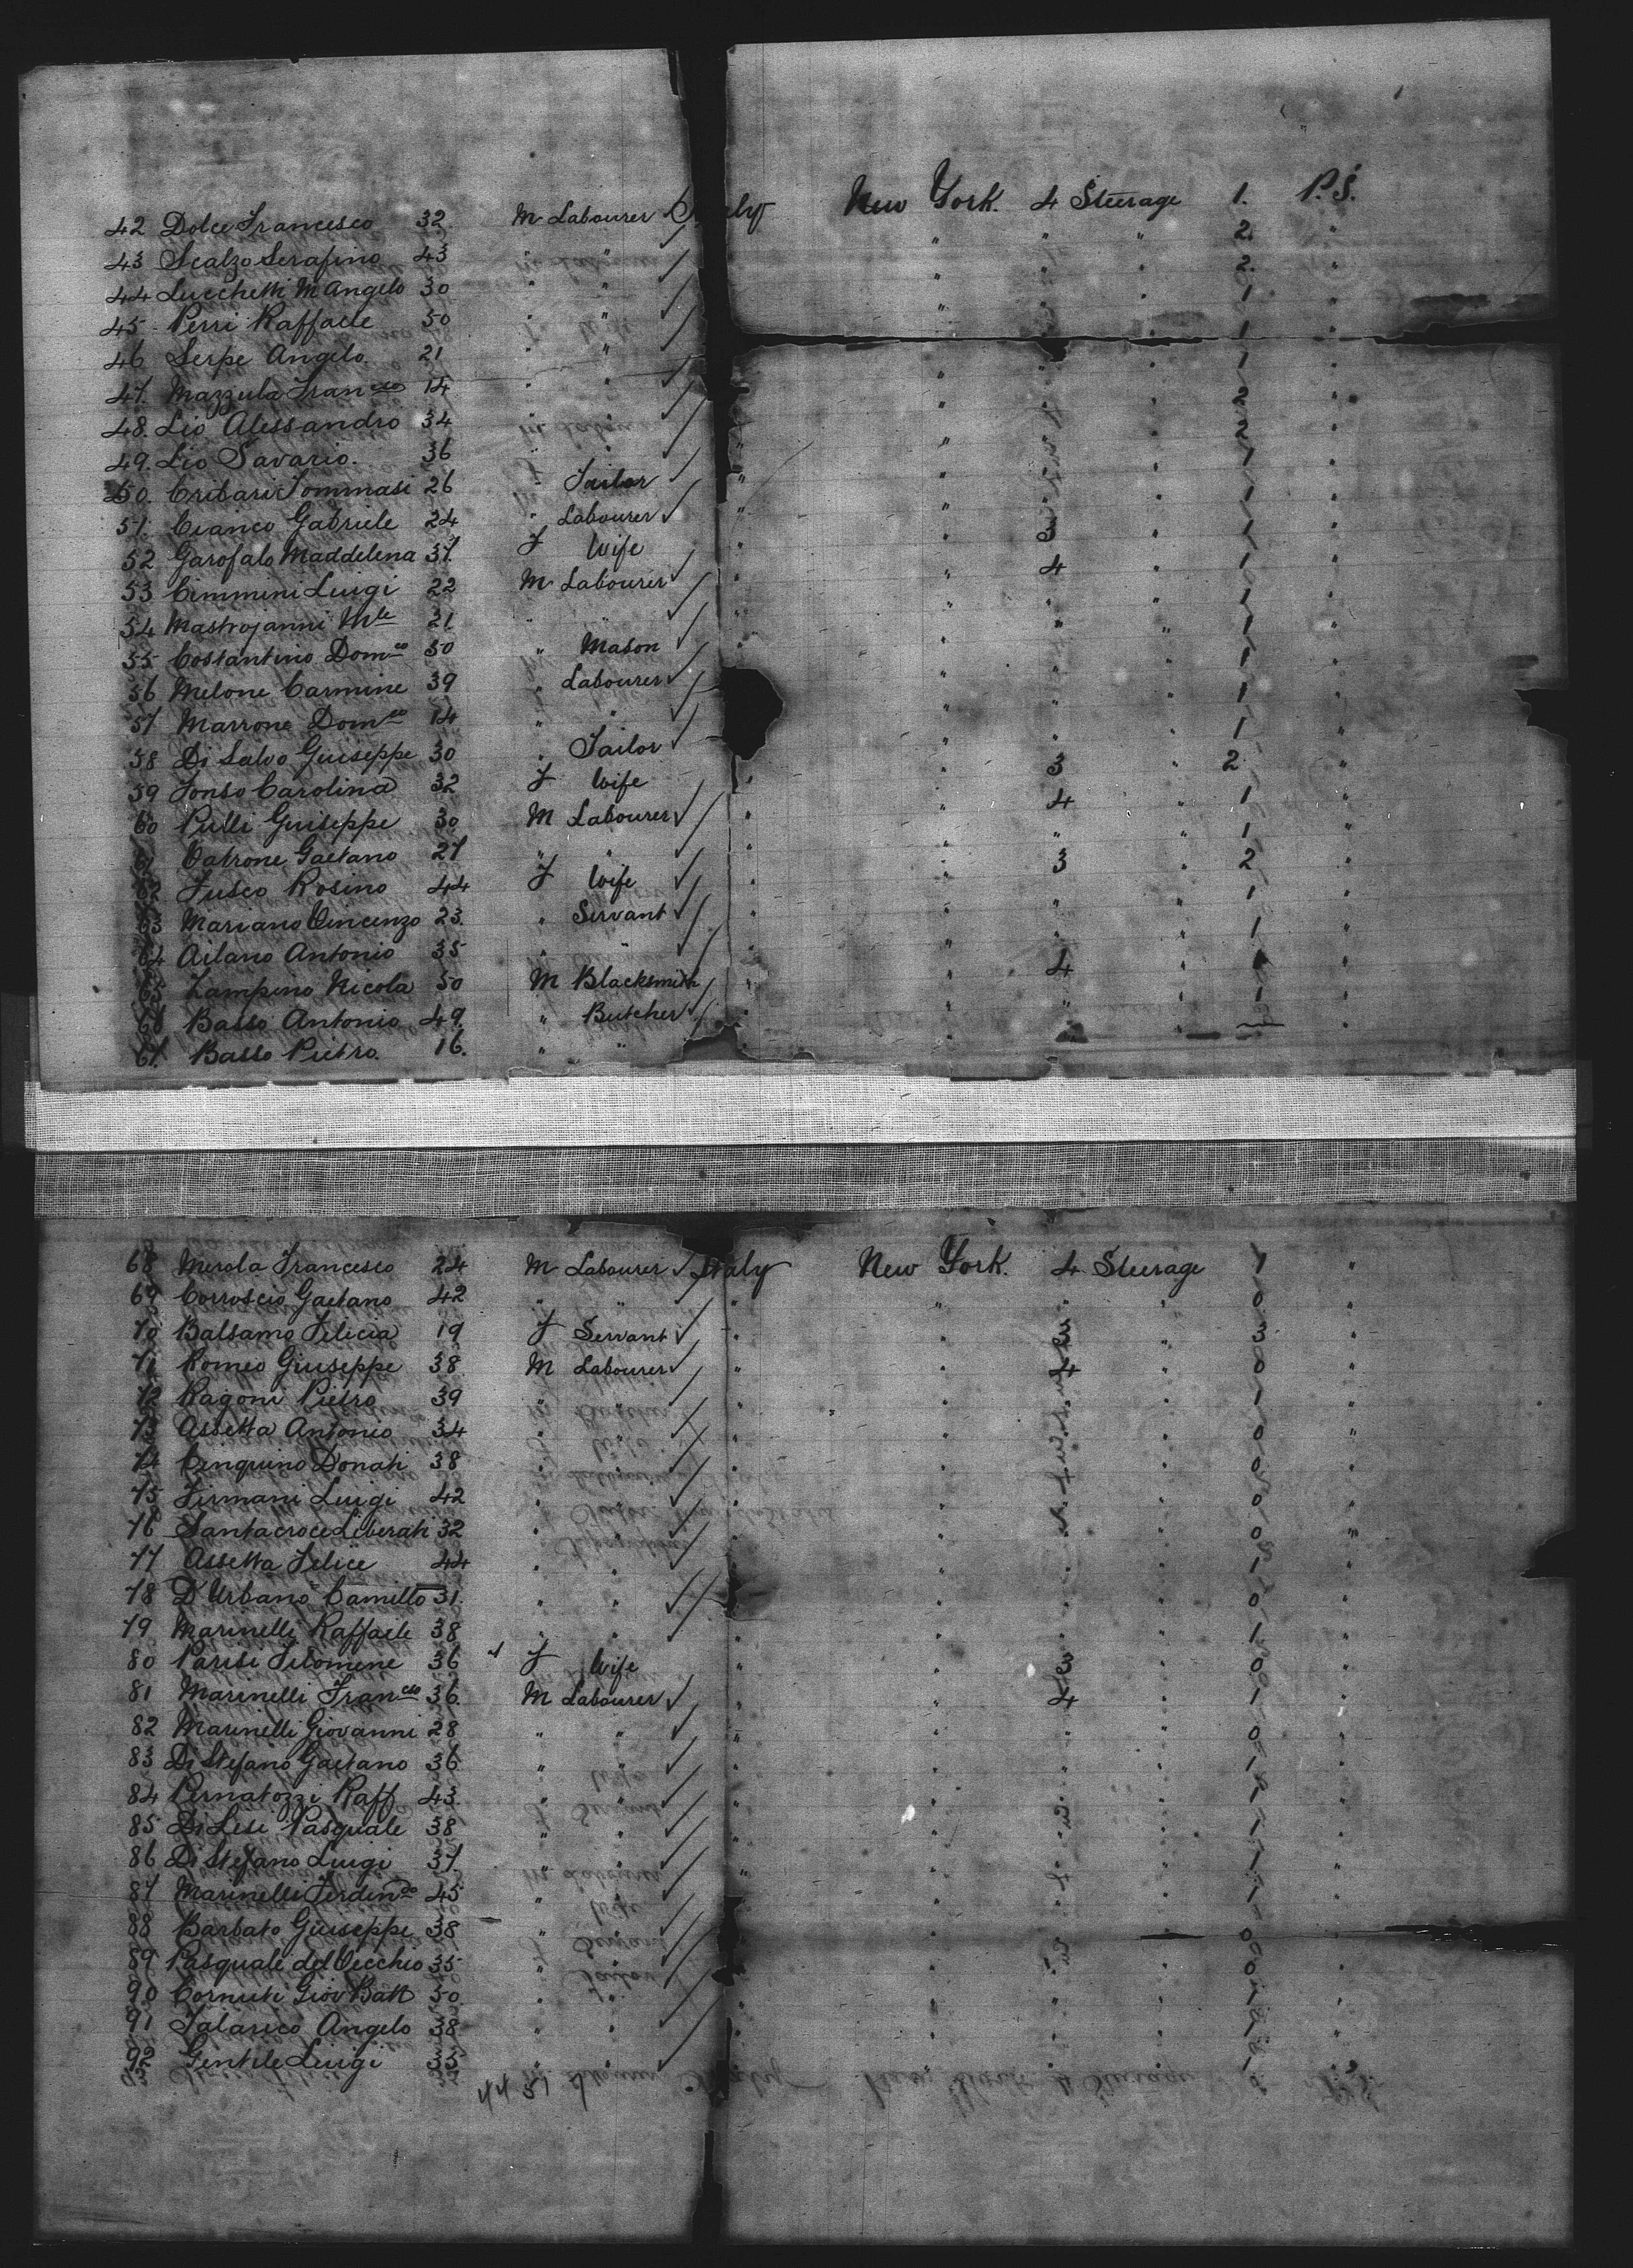 42 Dolce Francesco 32 M Labourer Italy New York. 4 Steerage 1. P.S.
43 Scalzo Serafino 43 " " " " " 2. "
44 Lucchetti M Angelo 30 " " " " " 2. "
45 Perri Raffaele 50 " " " " " 1 "
46 Serpe Angelo. 21 " " " " " 1 "
47. Mazzula Franco 14 " " " " " 1 "
48. Lio Alessandro 34 " " " " " 2 "
49. Lio Savario. 36 " " " " " 2 "
50. Cribari Tommasi 26 " Tailor " " " 1 "
51. Cianco Gabriele 24 " Labourer " " " 1 "
52 Garofalo Maddelena 37. F Wife " " 3 " 1 "
53 Cimmini Luigi 22 M Labourer " " 4 " 1 "
54 Mastrojanni Mle 21. " " " " " 1 "
55 Costantino Domco 50 " Mason " " " 1 "
56 Melone Carmine 39 " Labourer " " " 1 "
57 Marrone Domco 14 " " " " " 1 "
58 Di Salvo Giuseppe 30 " Tailor " " " 1 "
59 Fonso Carolina 32 F Wife " " 3 " 2 "
60 Pulli Guiseppe 30 M Labourer " " 4 " 1 "
61 Catrone Gaetano 27 " " " " " 1 "
62 Fusco Rosino 44 F Wife " " 3 " 2 "
63 Mariano Vincenzo 23. " Servant " " " 1 "
64 Ailano Antonio 35 " " " " " 1 "
65 Zampino Nicola 50 M Blacksmith " " 4 " 1 "
66 Basso Antonio 49. " Butcher " " " 1 "
67. Basso Pietro. 16. " "
68 Merola Francesco 24 M Labourer Italy New York. 4 Steerage 1 "
69 Corroscio Gaetano 42 " " " " " 0 "
70 Balsamo Felicia 19 F Servant " " 3 " 3 "
71 Romeo Giuseppe 38 M Labourer " " 4 " 0 "
72 Ragoni Pietro 39 " " " " " 1 "
73 Assetta Antonio 34 " " " " " 0 "
74 Cinquino Donati 38 " " " " " 0 "
75 Firmani Luigi 42 " " " " " 0 "
76 Santacroce Liberati 32 " " " " " 0 "
77 Assetta Felice 44 " " " " " 1 "
78 D'Urbano Camillo 31. " " " " " 0 "
79 Marinelli Raffaele 38 " " " " " 1 "
80 Parisi Filomene 36 F Wife " " 3 " 0 "
81 Marinelli Franco 36. M Labourer " " 4 " 1 "
82 Marinelli Giovanni 28 " " " " " 0 "
83 Di Stefano Gaetano 36 " " " " " 1 "
84 Pernatozzi Raff 43. " " " " " 1 "
85 Di Lesi Pasquale 38 " " " " " 1 "
86 Di Stefano Luigi 37. " " " " " 1 "
87 Marinelli Ferdindo 45 " " " " " 1 "
88 Barbato Giuseppe 38 " " " " " 0 "
89 Pasquale del Vecchio 35 " " " " " 0 "
90 Cornuti Giov Batt 50 " " " " " 1 "
91 Talarico Angelo 38 " " " " " 1 "
92 Gentile Luigi 35 " " " " " 1 "